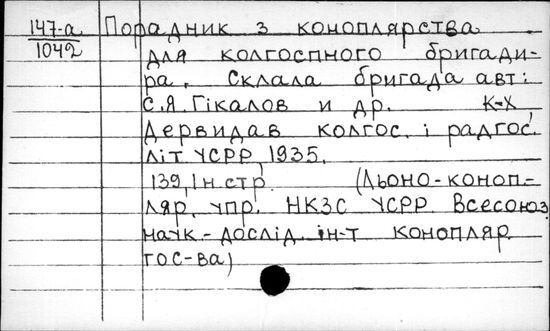 147-а Порадник з коноплярства
1042 для колгоспного бригади-
ра. Склала бригада авт:
С.Я. Гікалов и др. К-Х,
Держвидав колгос. і радгос.
літ УСРР, 1935.
139, Iн.стр. (Льоно-коноп-
ляр. упр. НКЗС УСРР Всесоюз.
наук-дослід. ін-т конопляр
гос-ва)